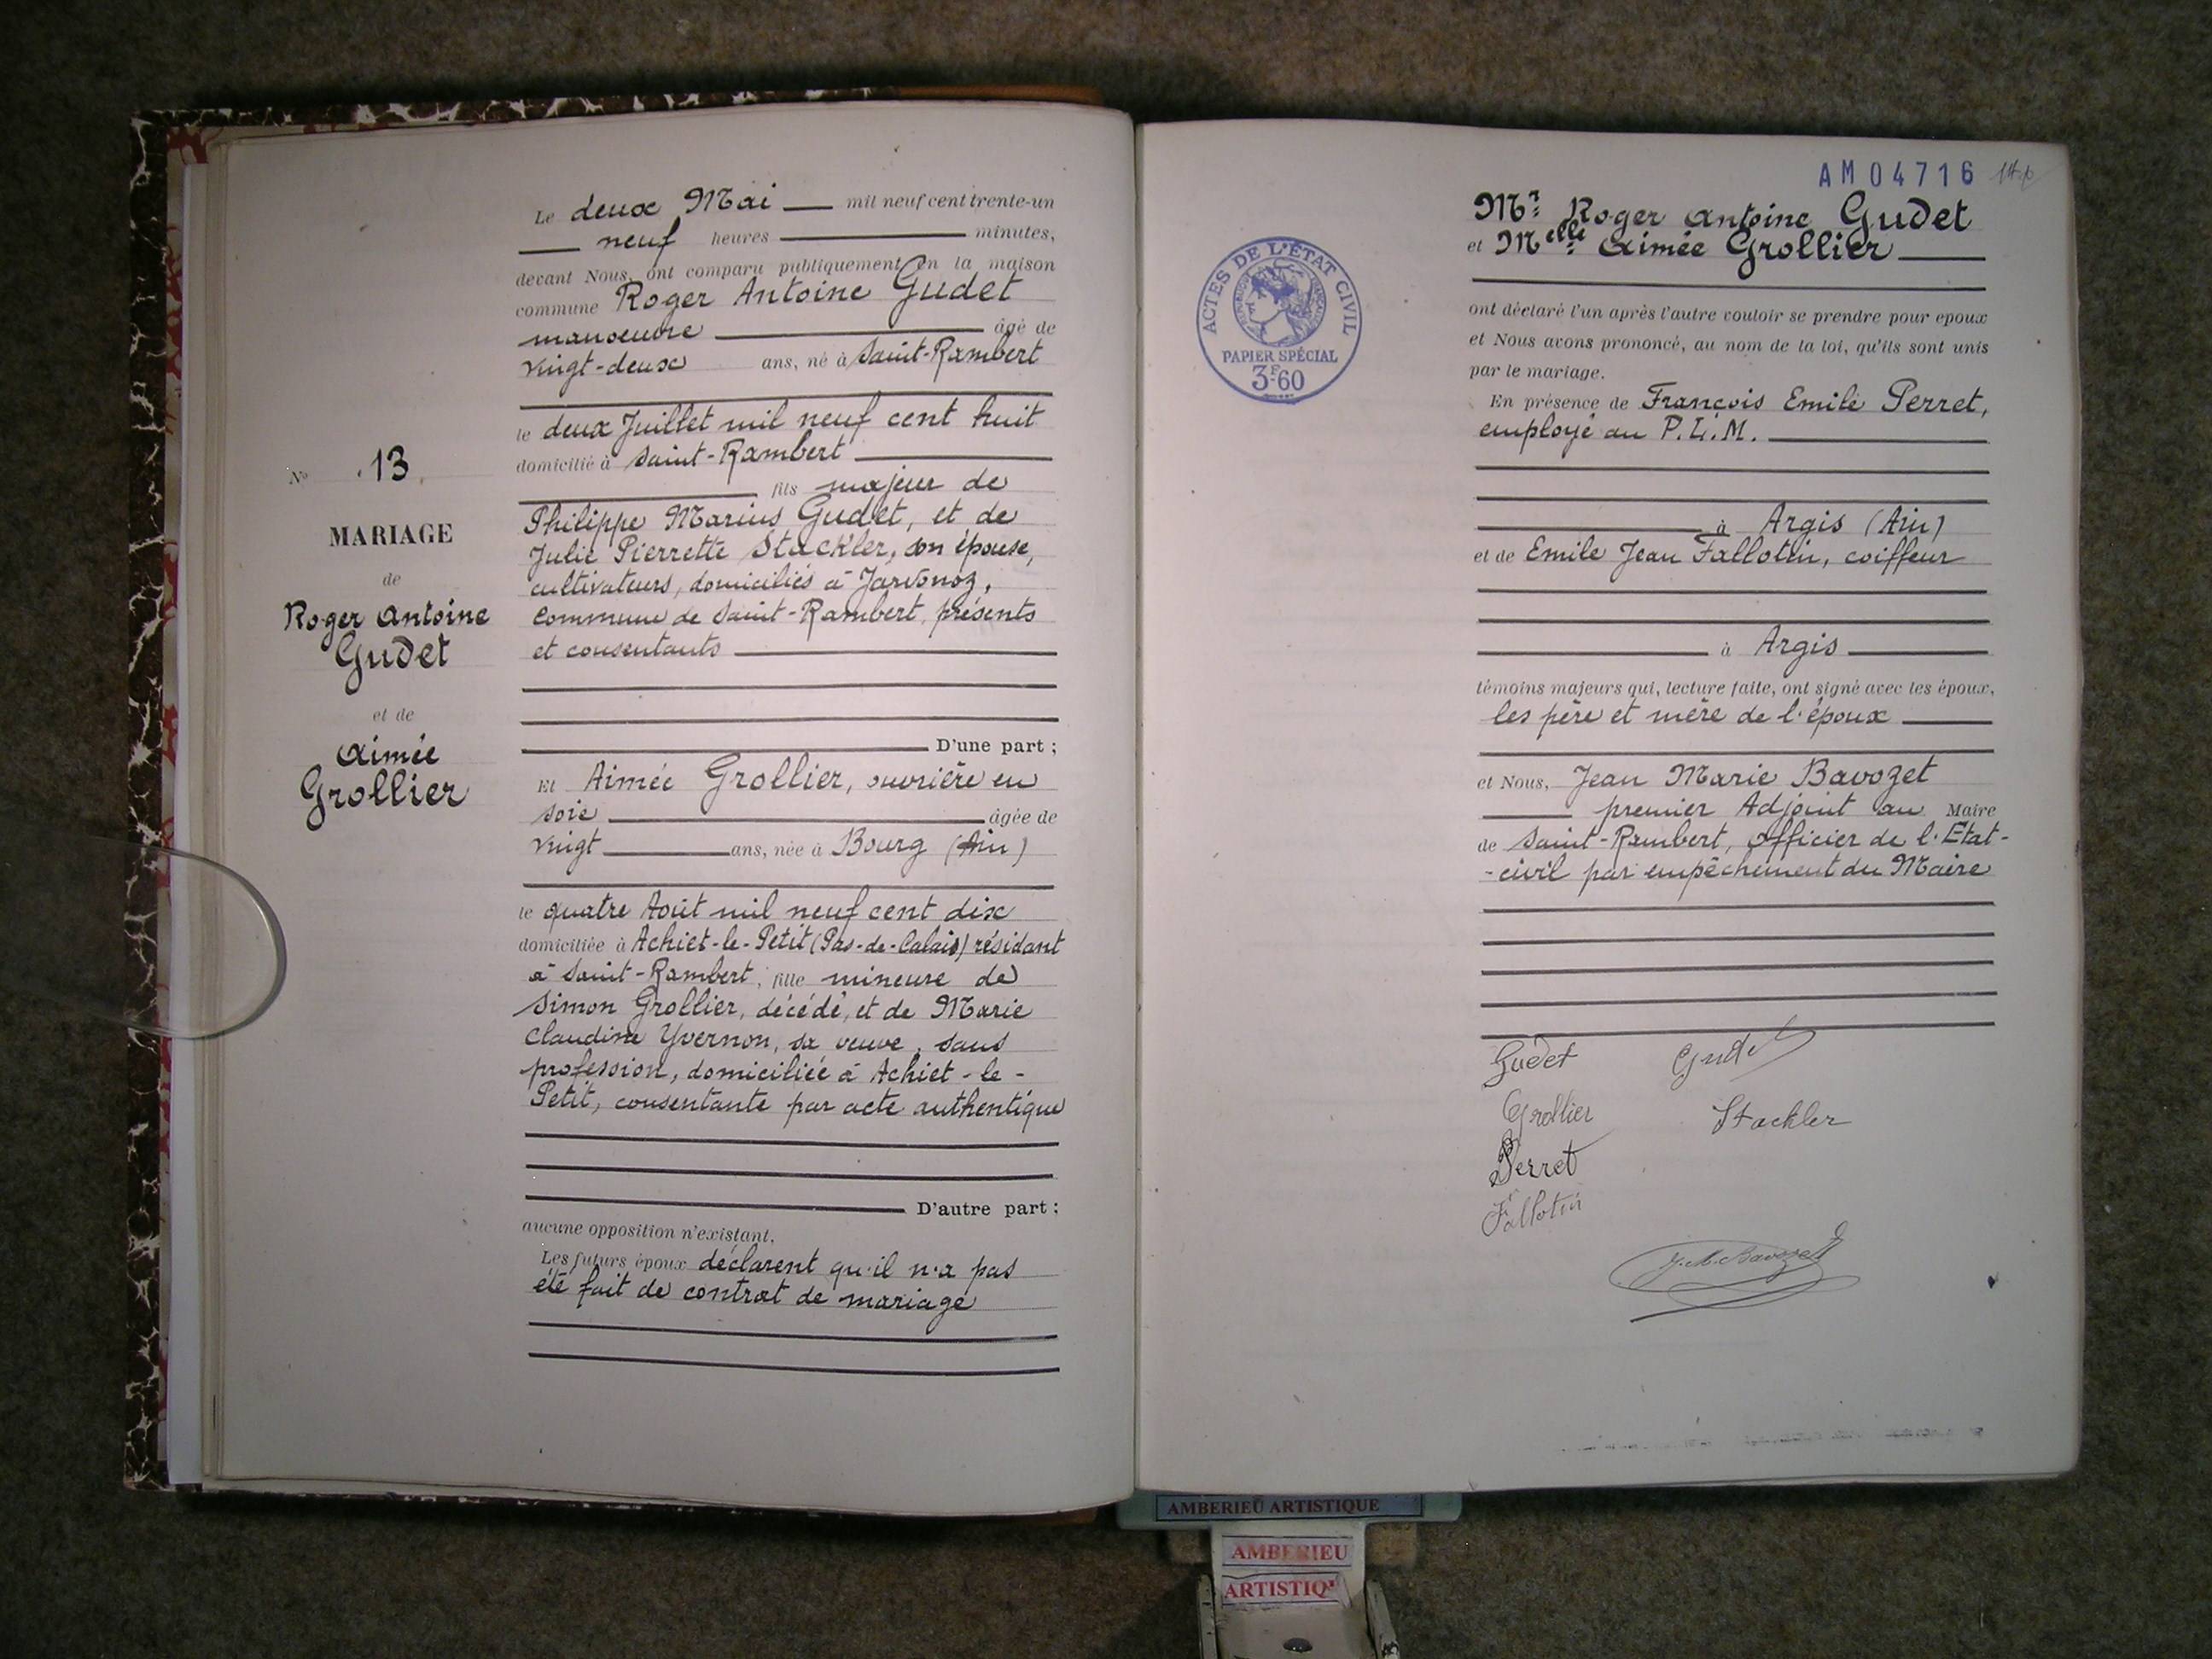 Le deux Mai mil neuf cent trente-un
neuf heures minutes,
devant Nous, ont comparu publiquement en la maison
commune Roger Antoine Gudet
manoeuvre âgé de
vingt-deux ans, né à Saint-Rambert
le deux Juillet mil neuf cent huit
domicilié à Saint-Rambert
fils majeur de
Philippe Marius Gudet, et de
Julie Pierrette Stackler, son épouse,
cultivateurs, domiciliés à Javornoz,
commune de Saint-Rambert, présents
et consentants
D'une part ;
Et Aimée Grollier, ouvrière en
soie âgée de
vingt ans, née à Bourg (Ain)
le quatre Août mil neuf cent dix
domiciliée à Achiet-le-Petit (Pas-de-Calais) résidant
à Saint-Rambert, fille mineure de
Simon Grollier, décédé, et de Marie
Claudine Yvernon, sa veuve, sans
profession, domiciliée à Achiet-le-
Petit, consentante par acte authentique
D'autre part ;
aucune opposition n'existant.
Les futurs époux déclarent qu'il n'a pas
été fait de contrat de mariage
No 13
MARIAGE
de
Roger Antoine
Gudet
et de
Aimée
Grollier
AM04716
Mr Roger Antoine Gudet
et Melle Aimée Grollier
ont déclaré l'un après l'autre vouloir se prendre pour epoux
et Nous avons prononcé, au nom de la loi, qu'ils sont unis
par le mariage.
En présence de François Emile Perret,
employé au P.L.M.
à Argis (Ain)
et de Emile Jean Fallotin, coiffeur
à Argis
témoins majeurs qui, lecture faite, ont signé avec les époux,
les père et mère de l'époux
et Nous, Jean Marie Bavozet
premier Adjoint au Maire
de Saint-Rambert, Officier de l'Etat-
-civil par empêchement du Maire
Gudet Gudet
Grollier Stackler
Perret
Fallotin
J. M. Bavozet
ACTES DE L'ÉTAT CIVIL
PAPIER SPÉCIAL
3F60
AMBERIEU ARTISTIQUE
AMBERIEU
ARTISTIQ